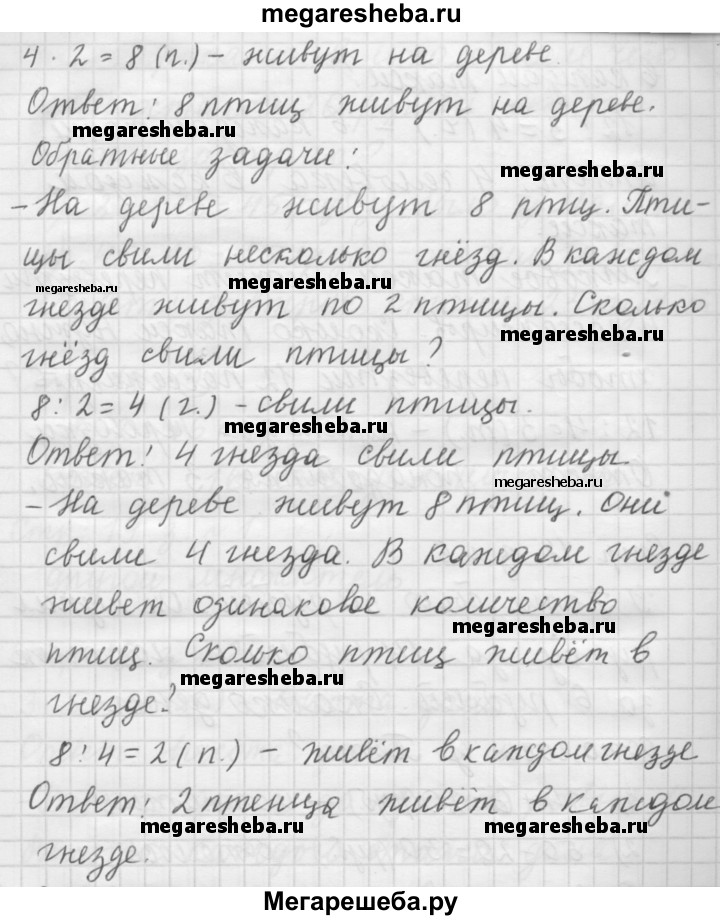 megaresheba.ru
4 · 2 = 8 (п.) – живут на дереве.
Ответ: 8 птиц живут на дереве.
megaresheba.ru
Обратные задачи:
megaresheba.ru
– На дереве живут 8 птиц. Пти-
цы свили несколько гнёзд. В каждом
megaresheba.ru megaresheba.ru
гнезде живут по 2 птицы. Сколько
megaresheba.ru
гнёзд свили птицы?
8 : 2 = 4 (г.) – свили птицы.
megaresheba.ru
Ответ: 4 гнезда свили птицы.
megaresheba.ru
– На дереве живут 8 птиц. Они
свили 4 гнезда. В каждом гнезде
живет одинаковое количество
megaresheba.ru
птиц. Сколько птиц живёт в
megaresheba.ru
гнезде?
8 : 4 = 2 (п.) – живёт в каждом гнезде
Ответ: 2 птенца живёт в каждом
megaresheba.ru megaresheba.ru
гнезде.
Мегарешеба.ру